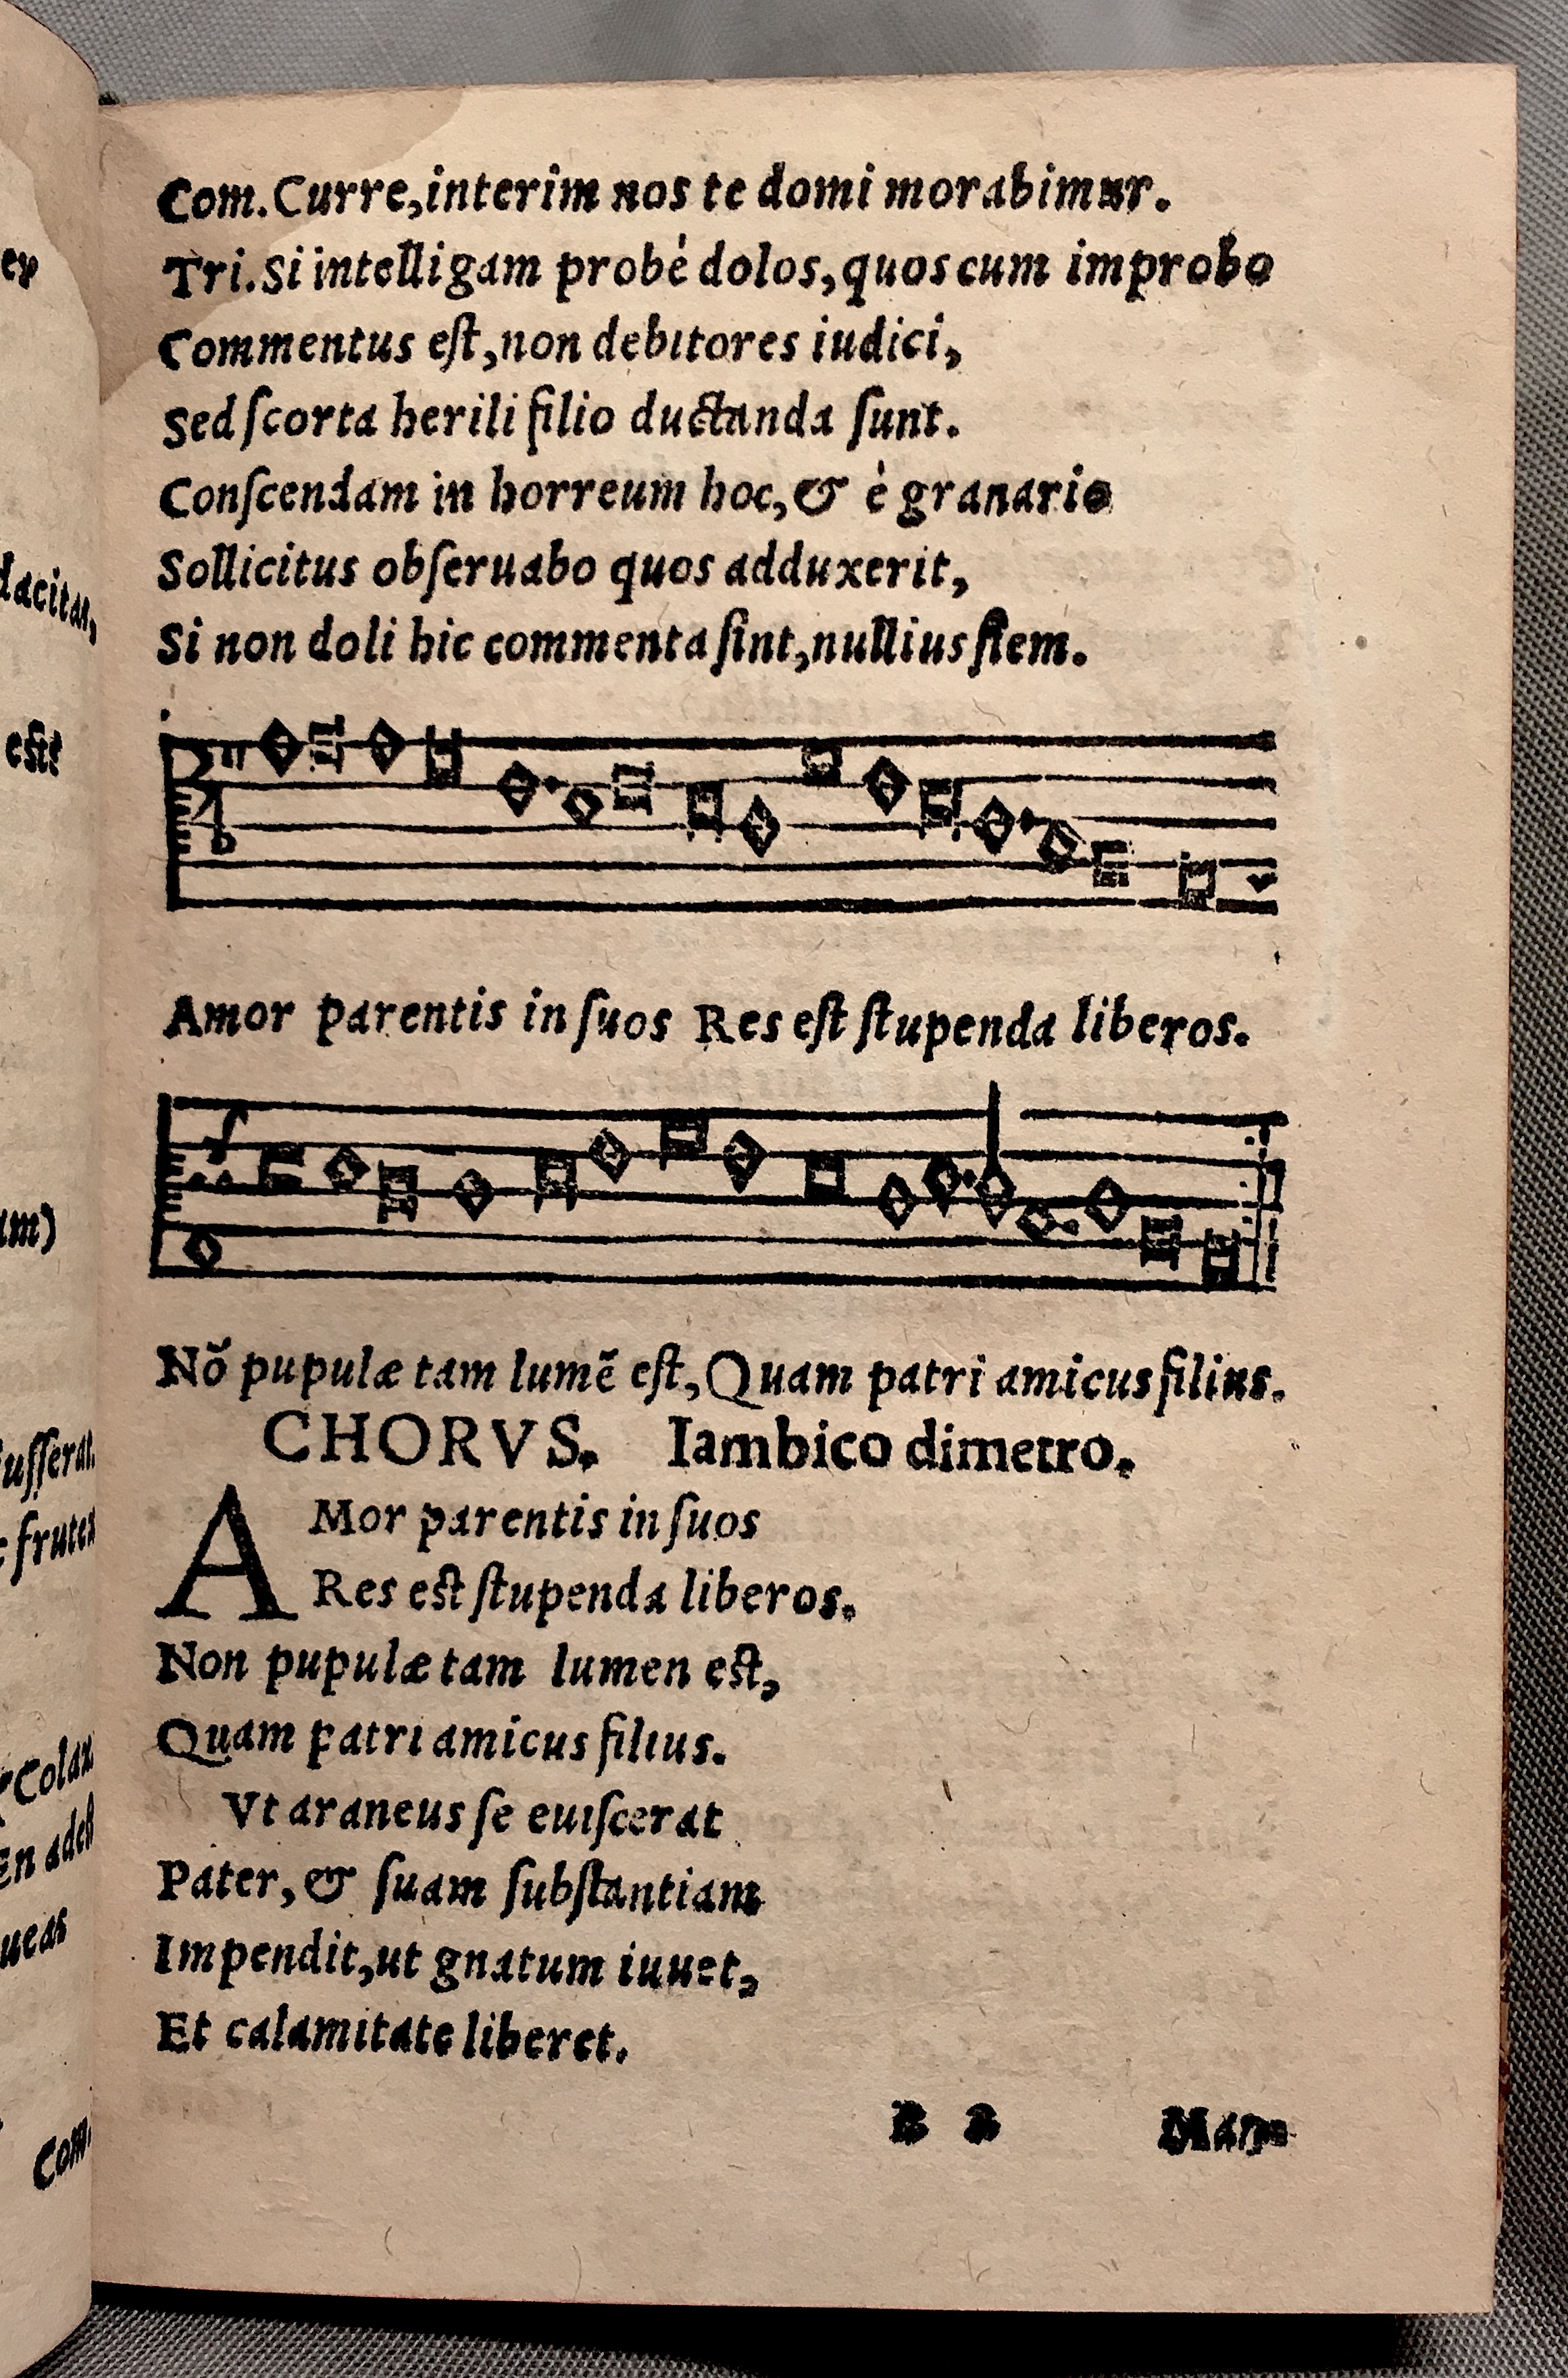 ey
dacitat,
est
um)
iusserat.
frutex
Colax
En adest
ueas
Com.
Com. Curre, interim nos te domi morabimur.
Tri. Si intelligam probè dolos, quos cum improbo
Commentus eſt, non debitores iudici,
Sed ſcorta herili filio ductanda ſunt.
Conſcendam in horreum hoc, & è granario
Sollicitus obſeruabo quos adduxerit,
Si non doli hic commenta ſint, nullius ſiem.
Amor parentis in ſuos Res eſt ſtupenda liberos.
Nō pupulæ tam lumē eſt, Quam patri amicus filius.
CHORVS. Iambico dimetro.
AMor parentis in ſuos
Res eſt ſtupenda liberos.
Non pupulæ tam lumen eſt,
Quam patri amicus filius.
Vt araneus ſe euiſcerat
Pater, & ſuam ſubſtantiam
Impendit, ut gnatum iuuet,
Et calamitate liberet.
B 2 Man-